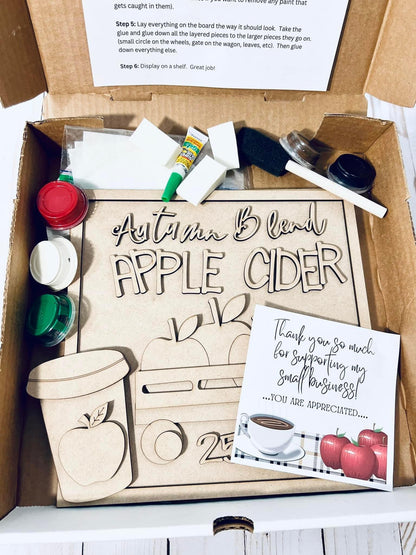 if you want to remove any paint that
gets caught in them).
Step 5: Lay everything on the board the way it should look. Take the
glue and glue down all the layered pieces to the larger pieces they go on.
(small circle on the wheels, gate on the wagon, leaves, etc). Then glue
down everything else.
Step 6: Display on a shelf. Great job!
Autumn Blend
APPLE CIDER
25
Thank you so much
for supporting my
small business!
...YOU ARE APPRECIATED....